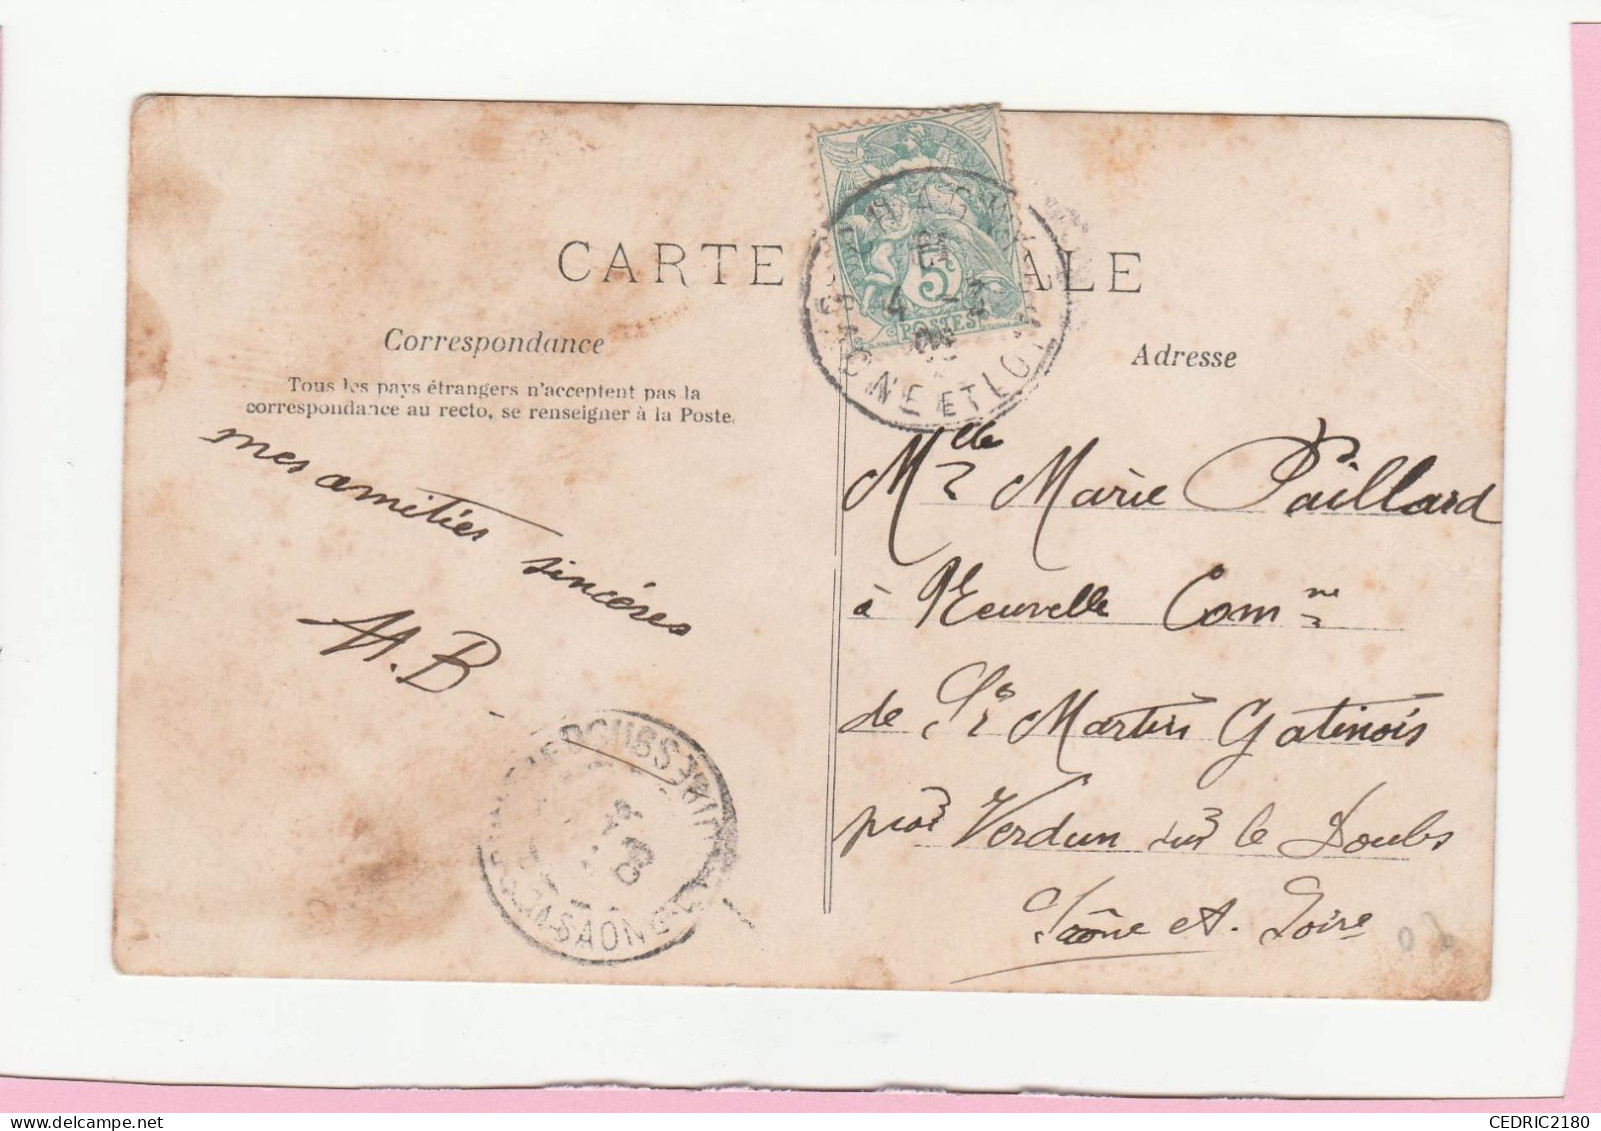 CARTE ALE
Correspondance
Tous les pays étrangers n'acceptent pas la
correspondance au recto, se renseigner à la Poste.
mes amitiés sincères
M.B
Adresse
Mlle Marie Paillard
à Neuvelle Comne
de St Martin Gatinois
près Verdun sur le Doubs
Saône et Loire
5c
POSTES
NE ET LOIRE
SAONE
CEDRIC2180